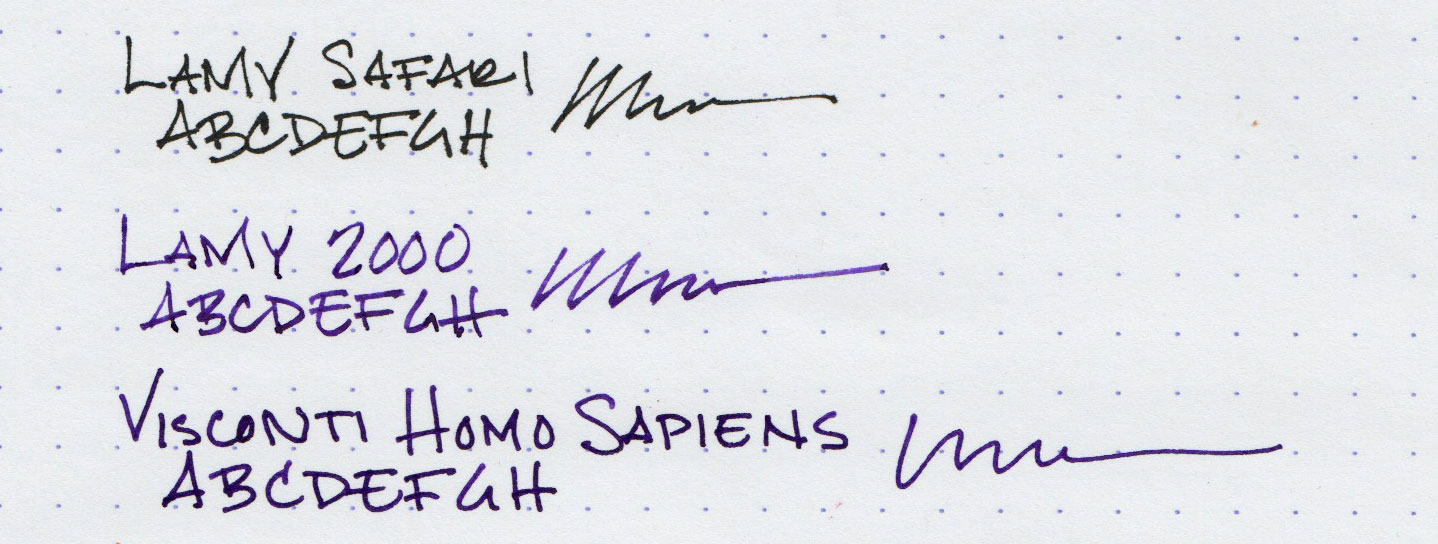 LAMY SAFARI
ABCDEFGH
LAMY 2000
ABCDEFGH
VISCONTI HOMO SAPIENS
ABCDEFGH